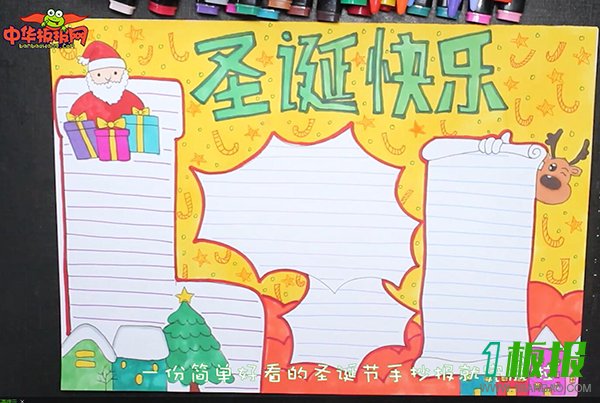 中华板报网
圣诞快乐
一份简单好看的圣诞节手抄报就完成
1板报